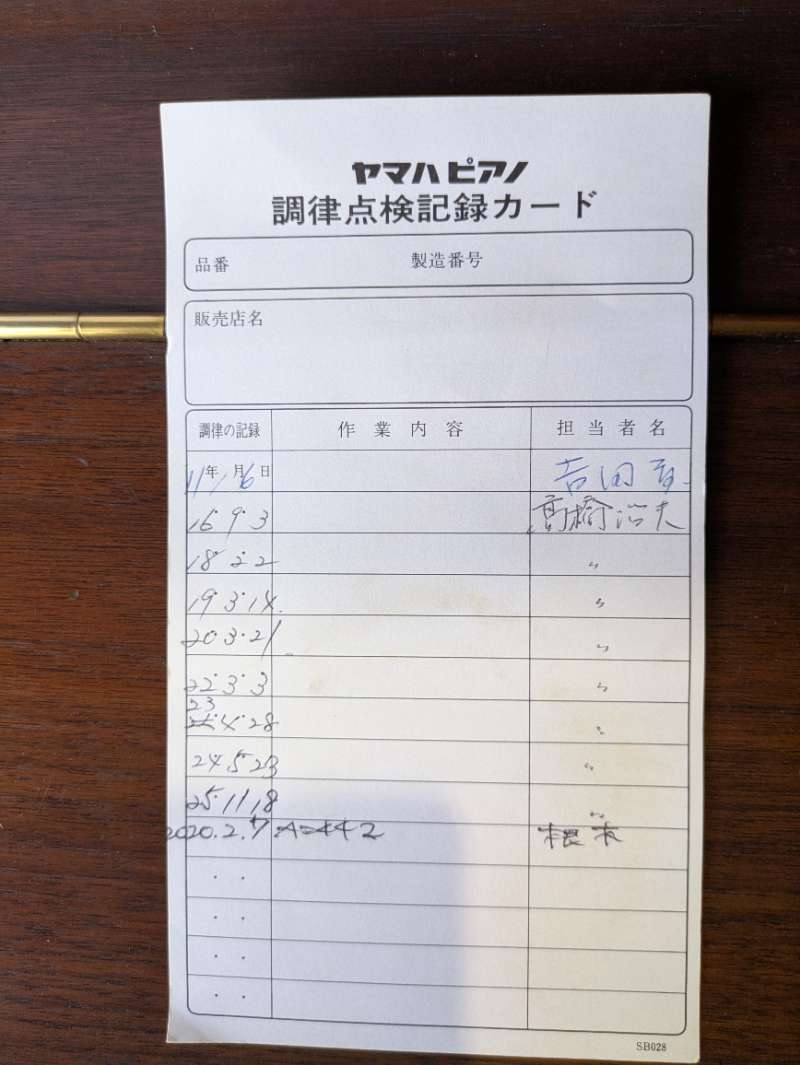 ヤマハピアノ
調律点検記録カード
品番 製造番号
販売店名
調律の記録 作業内容 担当者名
11年1月6日 吉田
16・9・3 高橋治夫
18・2・2 〃
19・3・14. 〃
20・3・21 〃
22・3・3 〃
23
4・28 〃
24 5 23 〃
25・11・18 〃
2020.2.7 A=442 根本
SB028